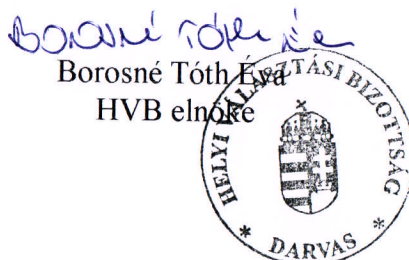 Borosné Tóth Éva
Borosné Tóth Éva
HVB elnöke
HELYI VÁLASZTÁSI BIZOTTSÁG
* DARVAS *